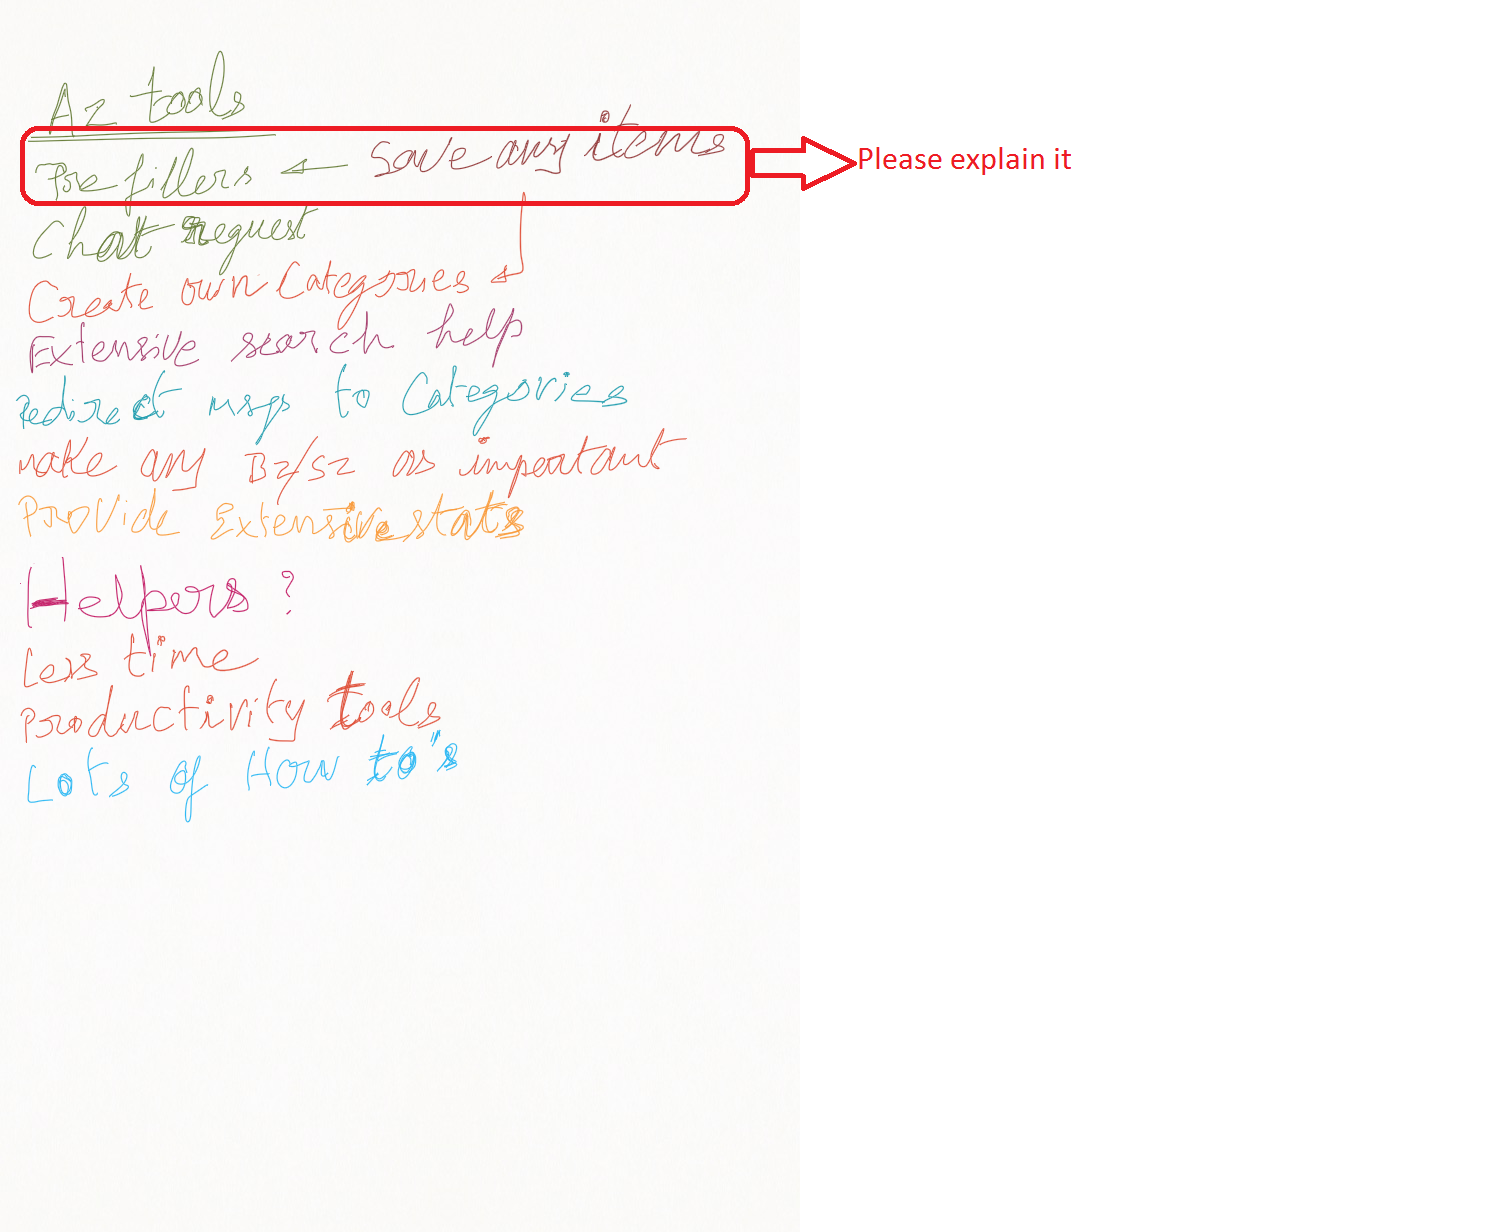 Az tools
Pre fillers ← Save any items
Please explain it
Chat request
Create own Categories
Extensive search help
Redirect msgs to Categories
make any Bz/Sz as important
Provide Extensive stats
Helpers ?
Less time
Productivity tools
Lots of How to's